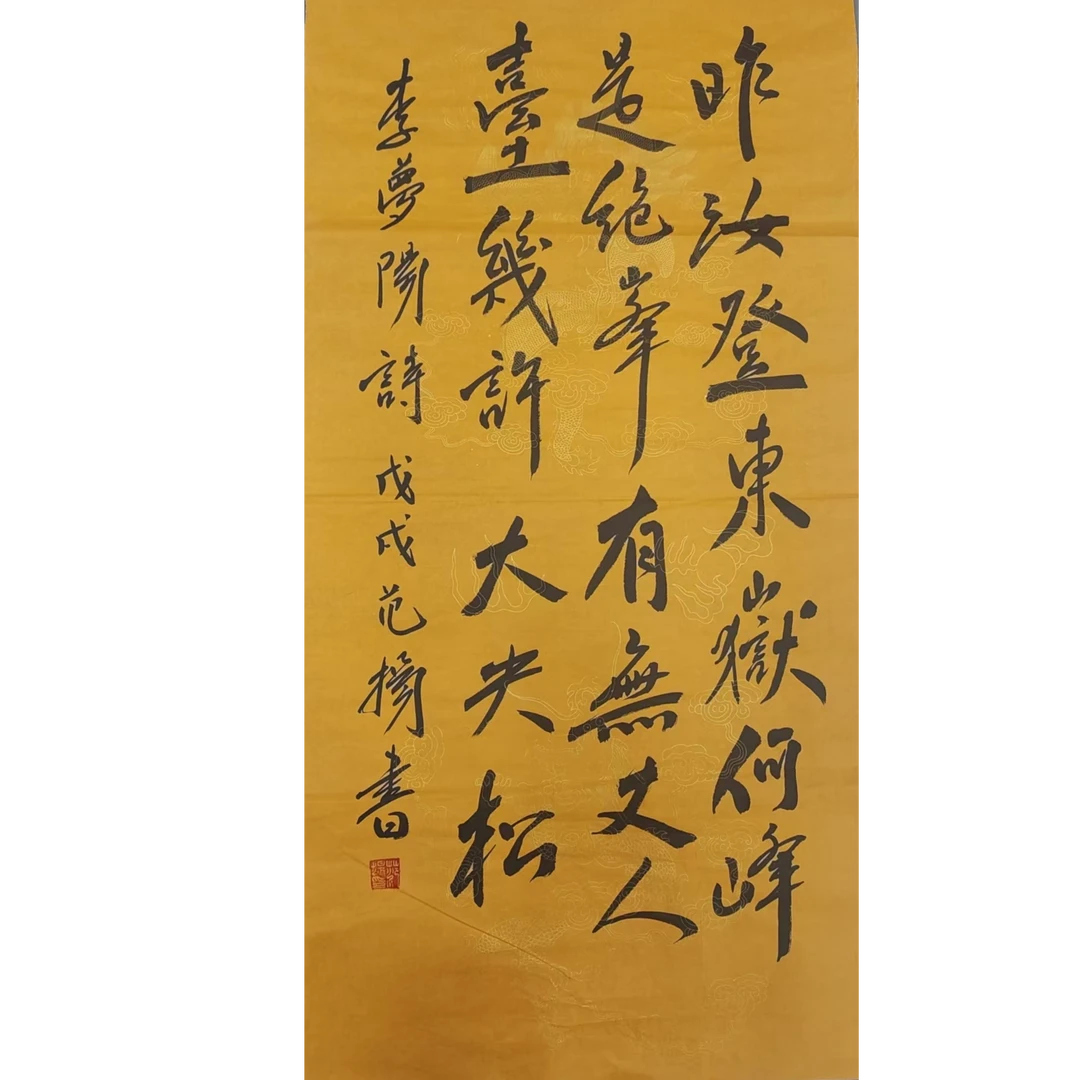 昨汝登東嶽何峰
是絶峯有無丈人
臺幾許大夫松
李夢陽詩戊戌范揚書